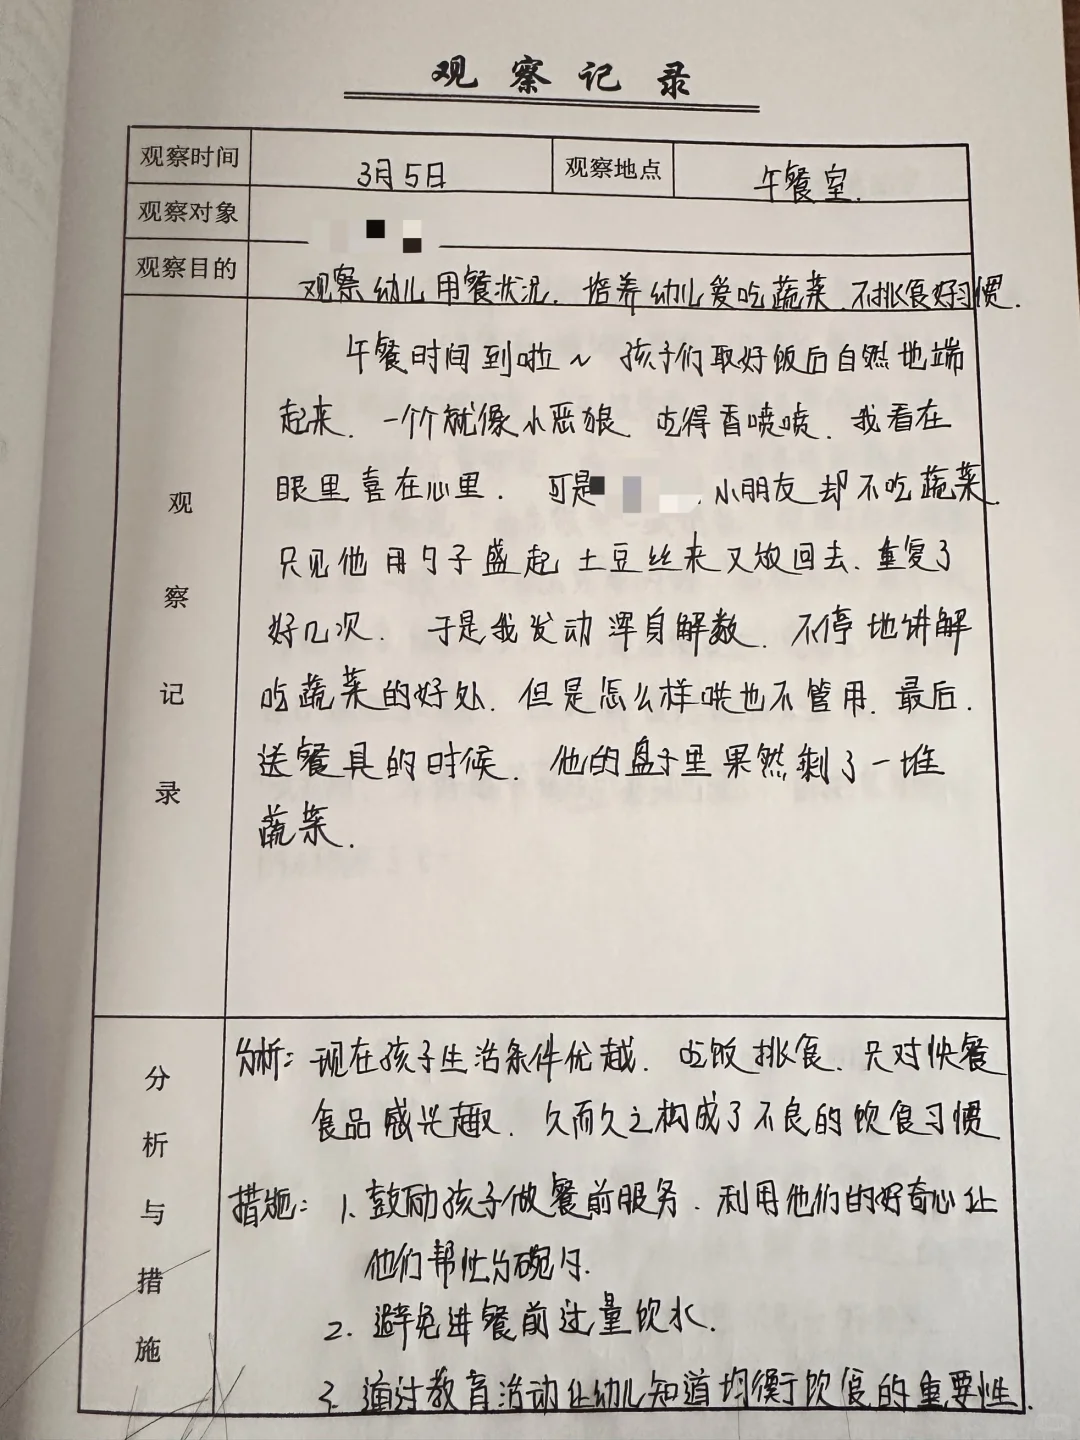 观察记录
观察时间 3月5日 观察地点 午餐室.
观察对象
观察目的 观察幼儿用餐状况. 培养幼儿爱吃蔬菜.不挑食好习惯.
观察记录
午餐时间到啦~ 孩子们取好饭后自然地端
起来. 一个个就像小恶狼. 吃得香喷喷. 我看在
眼里喜在心里. 可是 小朋友却不吃蔬菜.
只见他用勺子盛起土豆丝来又放回去. 重复了
好几次. 于是我发动浑身解数. 不停地讲解
吃蔬菜的好处. 但是怎么样哄也不管用. 最后.
送餐具的时候. 他的盘子里果然剩了一堆
蔬菜.
分析与措施
分析: 现在孩子生活条件优越. 吃饭挑食. 只对快餐
食品感兴趣. 久而久之构成了不良的饮食习惯
措施: 1. 鼓励孩子做餐前服务. 利用他们的好奇心让
他们帮忙分碗勺.
2. 避免进餐前过量饮水.
3. 通过教育活动让幼儿知道均衡饮食的重要性.